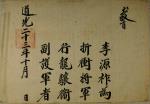 敎旨
李源祚為
折衝將軍
行龍驤衛
副護軍者
道光二十三年十月 日